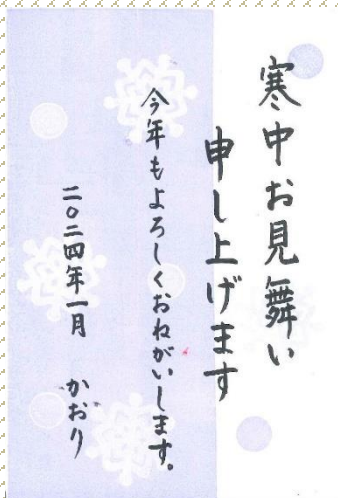 寒中お見舞い
申し上げます
今年もよろしくおねがいします。
二〇二四年一月　かおり